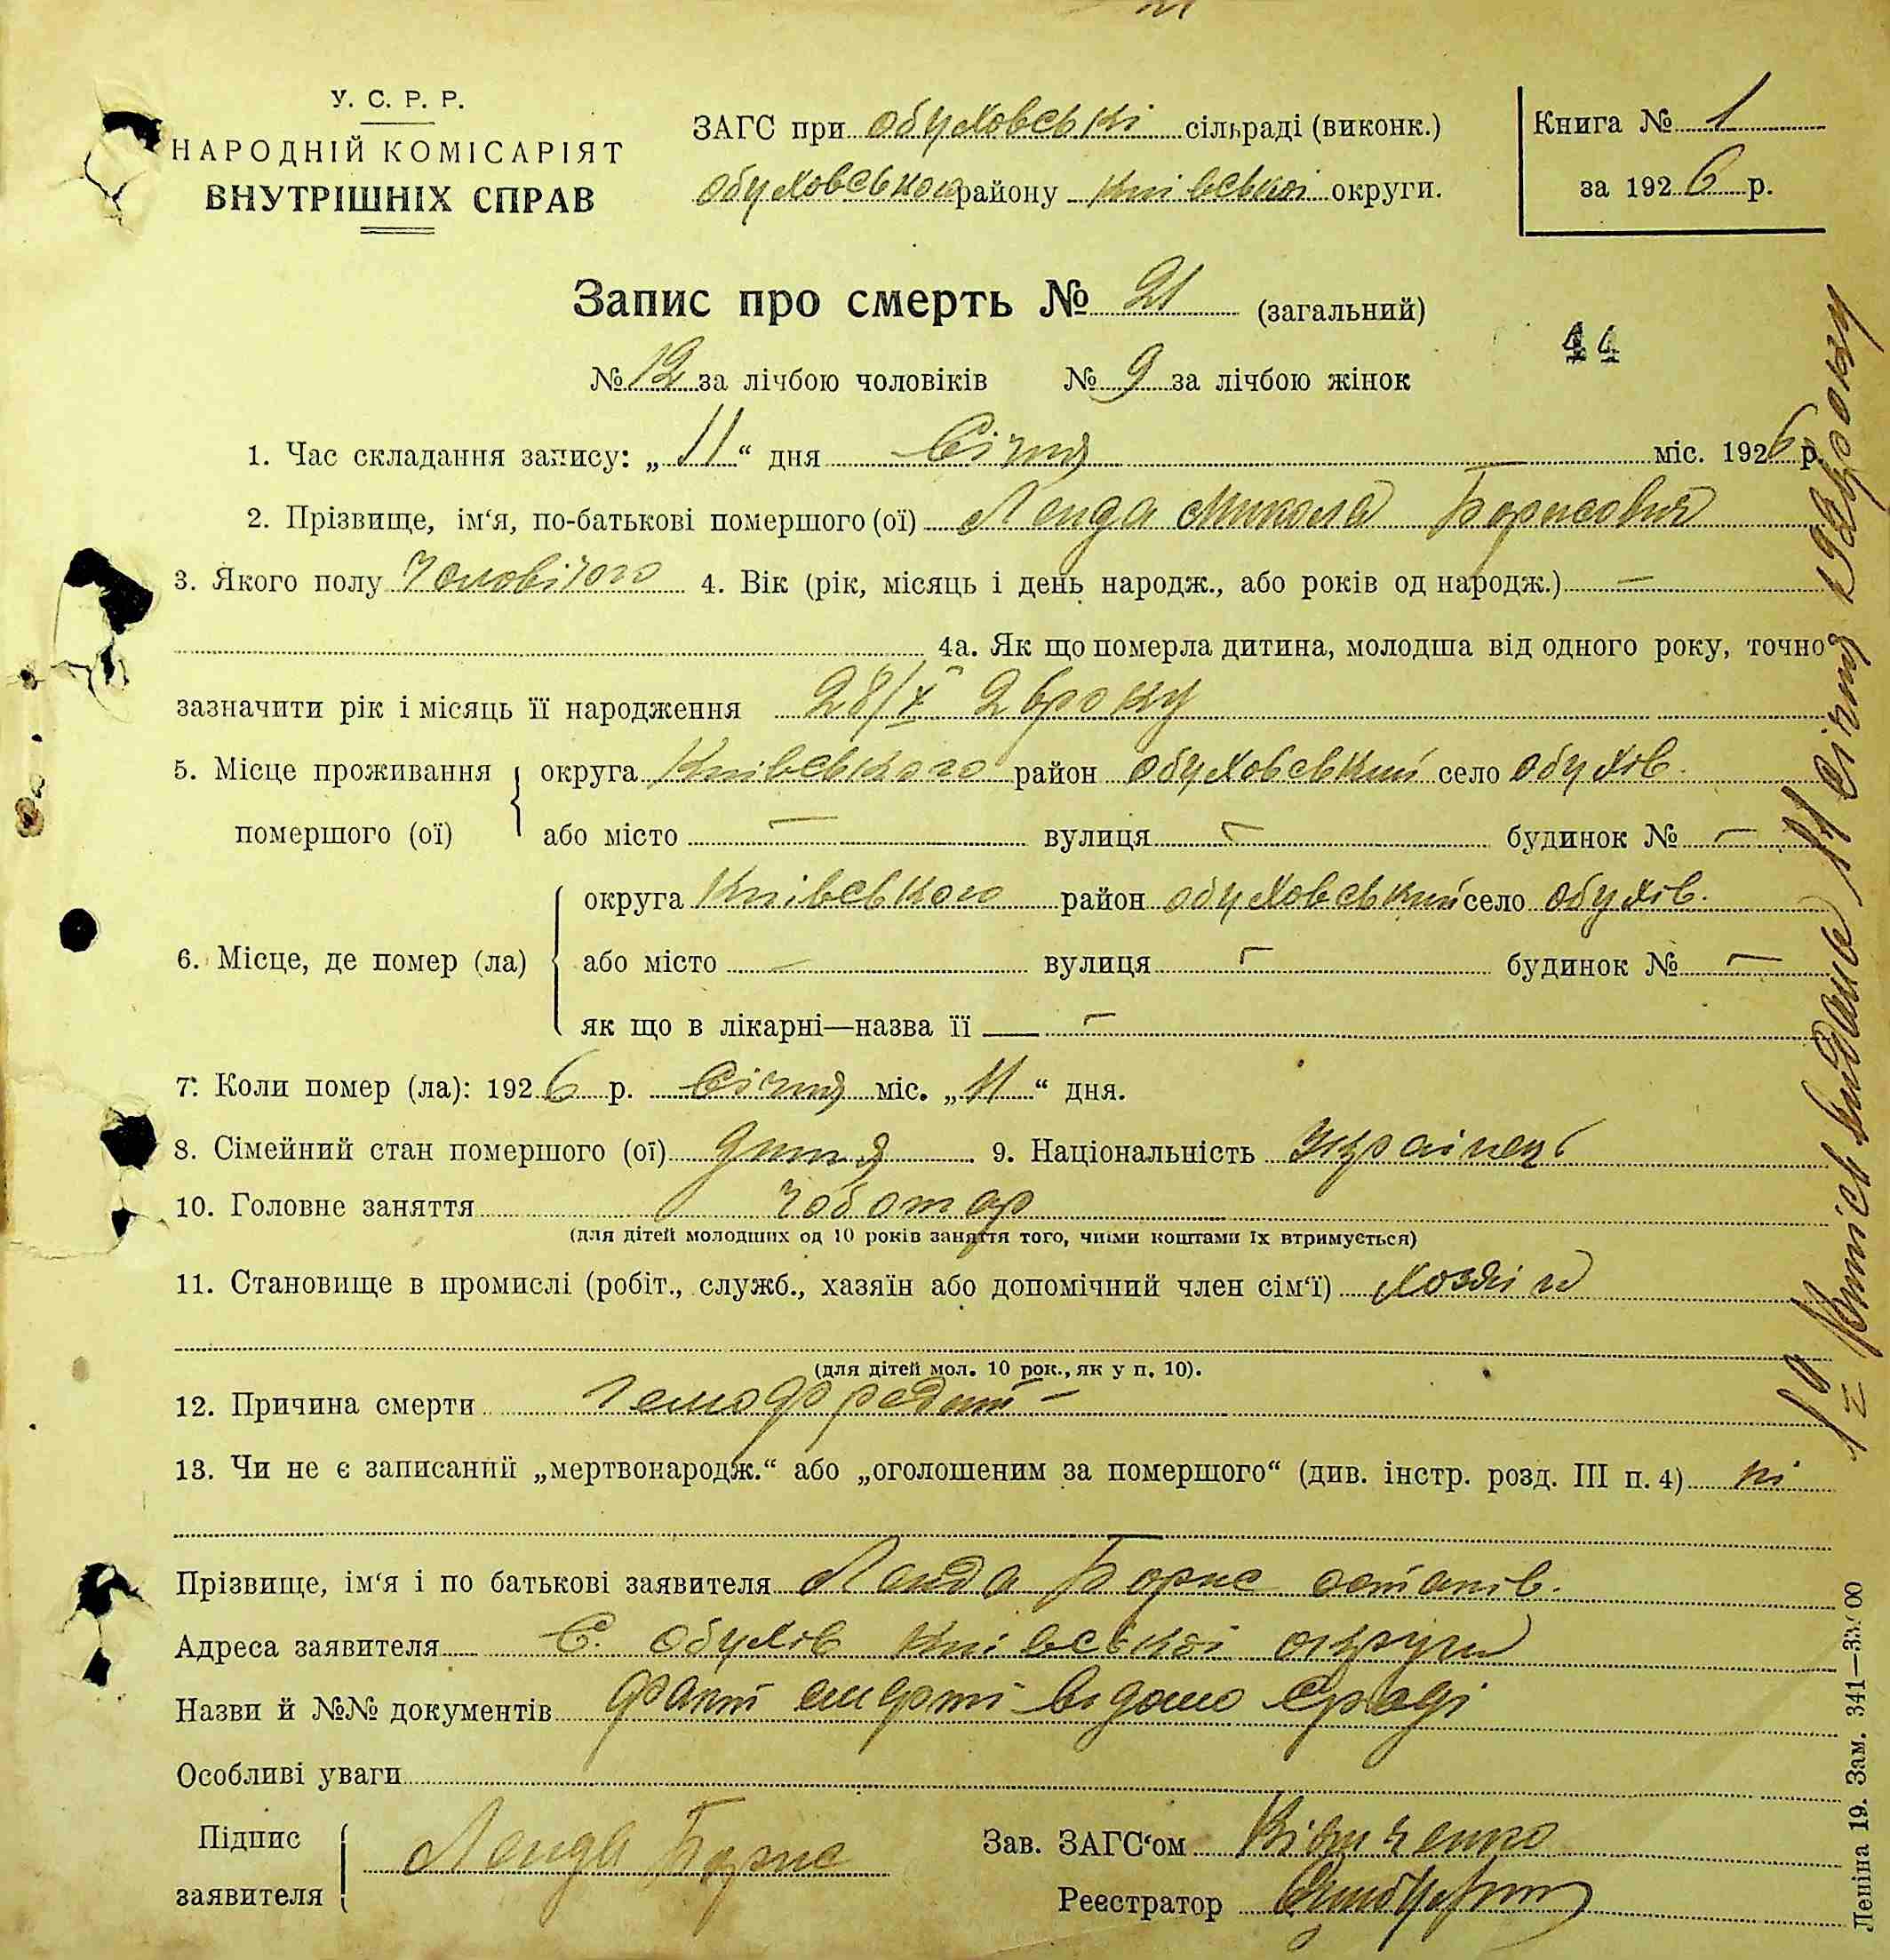 У. С. Р. Р.
НАРОДНІЙ КОМІСАРІЯТ
ВНУТРІШНІХ СПРАВ
ЗАГС при обуховські сільраді (виконк.)
обуховського району Київської округи.
Книга № 1
за 1926 р.
Запис про смерть № 21 (загальний)
44
№ 12 за лічбою чоловіків № 9 за лічбою жінок
1. Час складання запису: „11“ дня Січня міс. 1926 р.
2. Прізвище, ім‘я, по-батькові помершого (ої) Ленда Микола Борисович
3. Якого полу Чоловічого 4. Вік (рік, місяць і день народж., або років од народж.) —
4а. Як що померла дитина, молодша від одного року, точно
зазначити рік і місяць її народження 28/X 2 року
5. Місце проживання помершого (ої) округа Київського район обуховський село обухів.
або місто — вулиця — будинок № —
6. Місце, де помер (ла) округа Київського район обуховський село обухів.
або місто — вулиця — будинок № —
як що в лікарні—назва її —
7. Коли помер (ла): 1926 р. Січня міс. „11“ дня.
8. Сімейний стан помершого (ої) дитя 9. Національність Українець
10. Головне заняття чоботар
(для дітей молодших од 10 років заняття того, чиїми коштами їх втримується)
11. Становище в промислі (робіт., служб., хазяїн або допомічний член сім‘ї) Хозяін
(для дітей мол. 10 рок., як у п. 10).
12. Причина смерти
13. Чи не є записаний „мертвонародж.“ або „оголошеним за помершого“ (див. інстр. розд. III п. 4) ні
Прізвище, ім‘я і по батькові заявителя Ленда Борис остапів.
Адреса заявителя С. Обухів Київської округи
Назви й №№ документів факт смерті відомо Сраді
Особливі уваги
Підпис заявителя Ленда Борис
Зав. ЗАГС‘ом
Реєстратор
Випісь видана 11 січня 192 року
Леніна 19. Зам. 341—